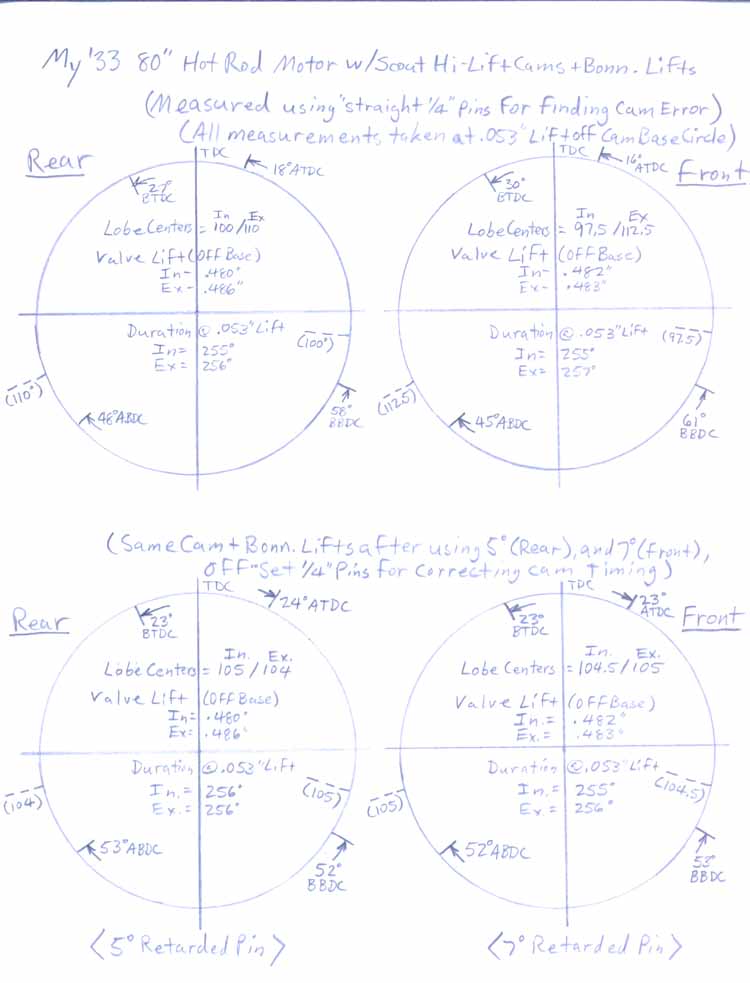 My '33 80" Hot Rod Motor w/Scout Hi-Lift Cams + Bonn. Lifts
(Measured using "straight" 1/4" Pins For Finding Cam Error)
(All measurements taken at .053" Lift off Cam Base Circle)
Rear
TDC
18° ATDC
27°
BTDC
In Ex
Lobe Centers = 100/110
Valve Lift (OFF Base)
In- .480"
Ex- .486"
Duration @ .053" Lift
In= 255°
Ex= 256°
(100°)
(110°)
48° ABDC
58°
BBDC
Front
TDC
16°
ATDC
30°
BTDC
In Ex
Lobe Centers = 97.5/112.5
Valve Lift (OFF Base)
In- .482"
Ex- .483"
Duration @ .053" Lift
In= 255°
Ex= 257°
(97.5)
(112.5)
45° ABDC
61°
BBDC
(Same Cam + Bonn. Lifts after using 5° (Rear), and 7° (front),
OFF "Set 1/4" Pins for correcting cam Timing)
Rear
TDC
24° ATDC
23°
BTDC
In. Ex.
Lobe Centers = 105/104
Valve Lift (OFF Base)
In= .480"
Ex= .486"
Duration @ .053" Lift
In.= 256°
Ex.= 256°
(105)
(104)
53° ABDC
52°
BBDC
<5° Retarded Pin>
Front
TDC
23°
ATDC
23°
BTDC
In. Ex.
Lobe Centers = 104.5/105
Valve Lift (OFF Base)
In.= .482"
Ex.= .483"
Duration @ .053" Lift
In.= 255°
Ex.= 256°
(104.5)
(105)
52° ABDC
53°
BBDC
<7° Retarded Pin>